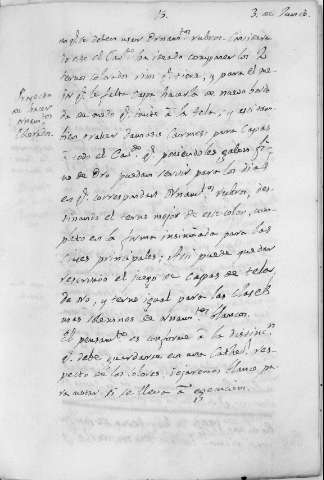 15.
3. de Junio
en q.e se deben usar Ornam.tos rubros. Considera
do esto el Cav.do ha ideado componer los 2.
ternos colorados ricos q.e tiene, y para el me
jor q.e le falta capa hacerla de nuevo borda
da de modo q.e imite à la tela; y assi tam
bien trabar Damasco Carmesi para Capas
à todo el Cav.do q.e poniendoles galon fi
no de Oro puedan servir para los dias
en q.e corresponden Ornam.tos rubros, des
tinando el terno mejor de este color, com
pleto en la forma insinuada para las
Clases principales; Assi puede quedar
reservado el juego de Capas de tela
de Oro, y terno igual para las Clases
mas solemnes de Ornam.tos blancos.
El pensam.to es conforme à la disciplin.a
q.e debe guardarse en una Cathed.l res
pecto de los colores. Dejaremos blanco pa
ra notar si se lleva à execucion.
Proyecto
de hacer
Ornamentos
Colorados.